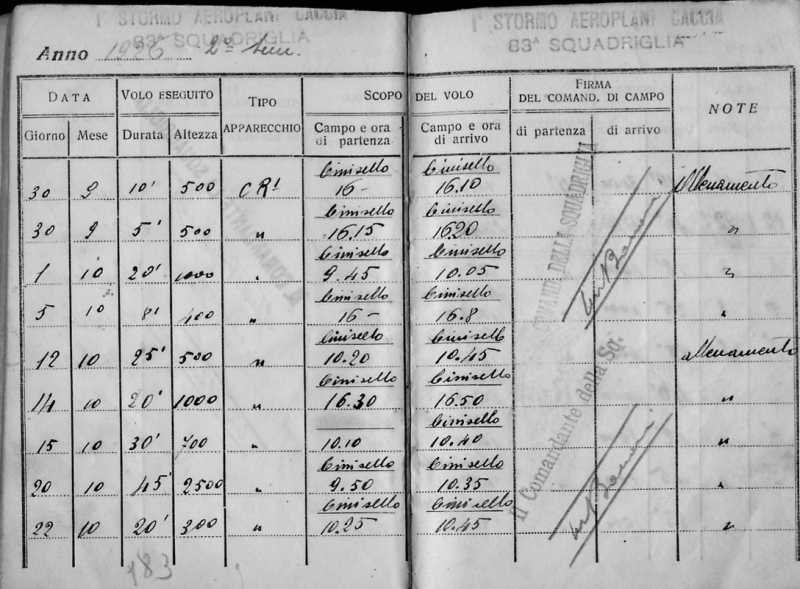 1° STORMO AEROPLANI CACCIA 1° STORMO AEROPLANI CACCIA
83ª SQUADRIGLIA 83ª SQUADRIGLIA
Anno 1926 2° Sem.
DATA VOLO ESEGUITO TIPO APPARECCHIO SCOPO DEL VOLO FIRMA DEL COMAND. DI CAMPO NOTE
Giorno Mese Durata Altezza Campo e ora di partenza Campo e ora di arrivo di partenza di arrivo
Cinisello Cinisello
30 9 10' 500 CR1 16- 16.10 Allenamento
Cinisello Cinisello
30 9 5' 500 " 16.15 1620 "
Cinisello Cinisello
1 10 20' 1000 " 9.45 10.05 "
Cinisello Cinisello
5 10 8' 400 " 16- 16.8 "
Cinisello Cinisello
12 10 25' 500 " 10.20 10.45 allenamento
Cinisello Cinisello
14 10 20' 1000 " 16.30 16.50 "
Cinisello
15 10 30' 700 " 10.10 10.40 "
Cinisello Cinisello
20 10 45' 2500 " 9.50 10.35 "
Cinisello Cinisello
22 10 20' 300 " 10.25 10.45 "
COMANDANTE DELLA SQUADRIGLIA
Il Comandante della Sq.
IL COMANDANTE
183